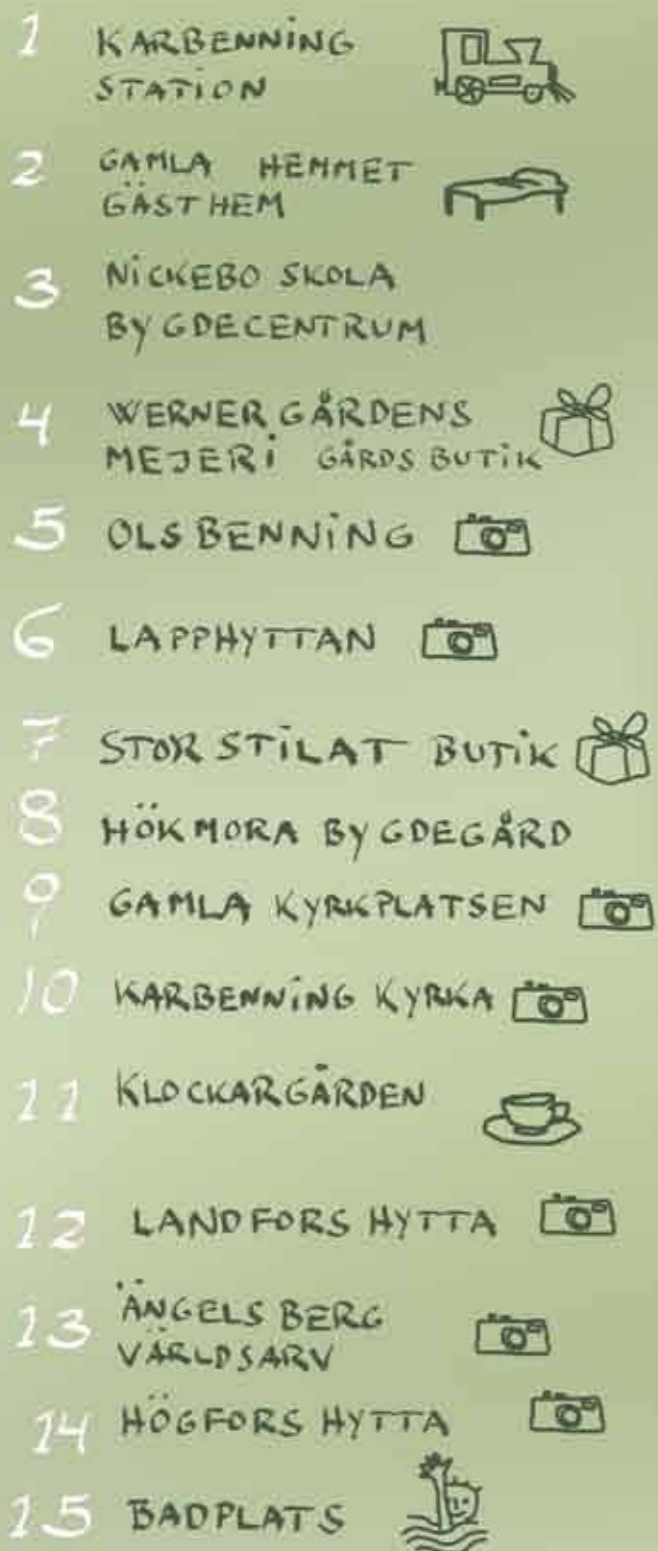 1 KARBENNING
STATION
2 GAMLA HEMMET
GÄSTHEM
3 NICKEBO SKOLA
BYGDECENTRUM
4 WERNERGÅRDENS
MEJERI GÅRDSBUTIK
5 OLSBENNING
6 LAPPHYTTAN
7 STORSTILAT BUTIK
8 HÖKMORA BYGDEGÅRD
9 GAMLA KYRKPLATSEN
10 KARBENNING KYRKA
11 KLOCKARGÅRDEN
12 LANDFORS HYTTA
13 ÄNGELSBERG
VÄRLDSARV
14 HÖGFORS HYTTA
15 BADPLATS